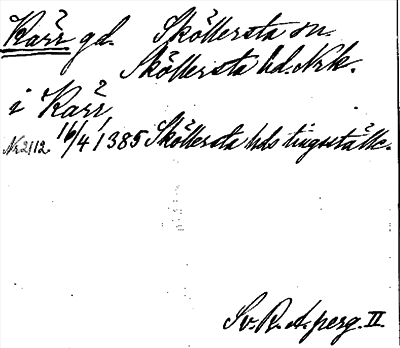 Kårr gd. Sköllersta sn.
Sköllersta hd. Nrk.
i Karr
16/4 1385 Sköllersta hds tingsställe.
Nr 2112.
Sv. R. A. perg. II.